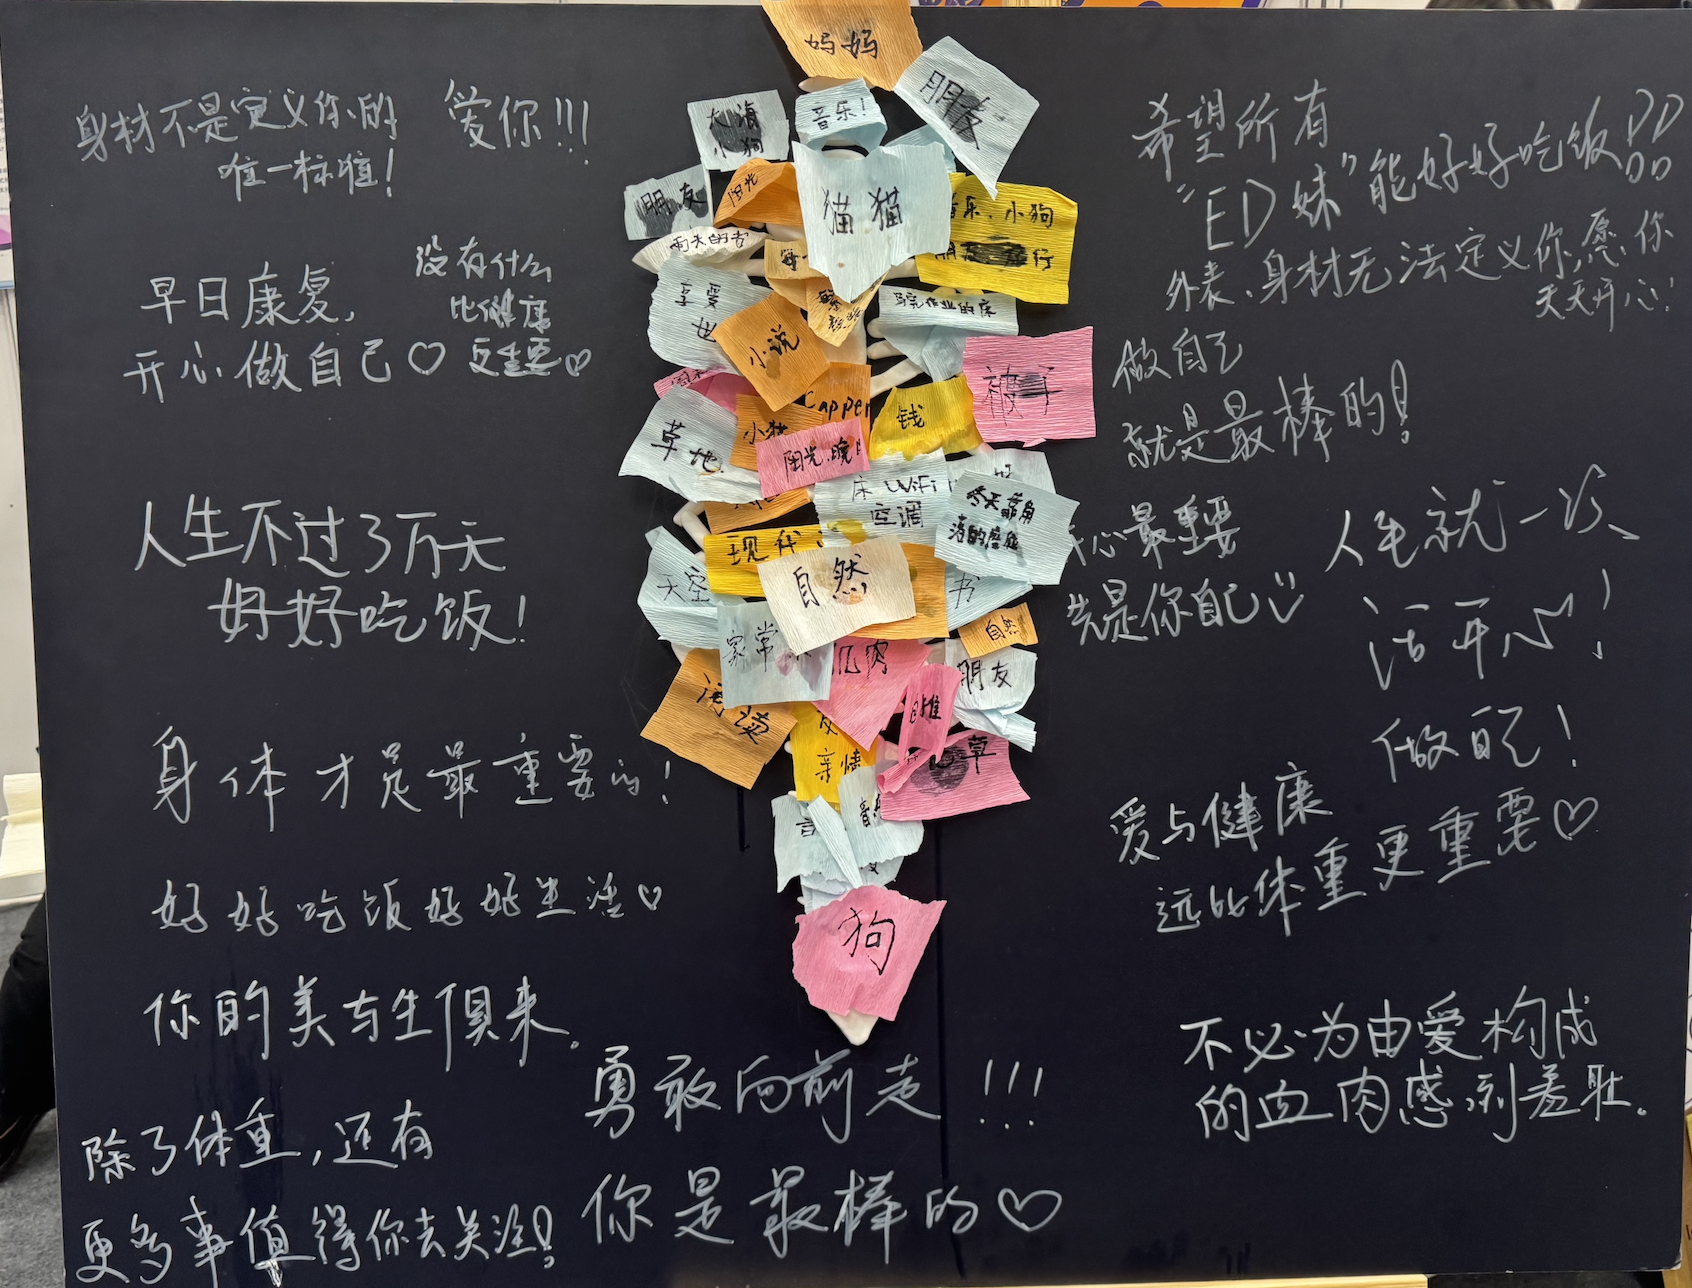 身材不是定义你的
唯一标准！
爱你!!!
早日康复，
开心做自己♡
没有什么
比健康
更重要♡
人生不过3万天
好好吃饭！
身体才是最重要的！
好好吃饭好好生活♡
你的美与生俱来。
除了体重，还有
更多事值得你去关注！
勇敢向前走!!!
你是最棒的♡
妈妈
朋友
大海
小狗
音乐！
朋友
阳光
猫猫
音乐、小狗
行
雨天的
享受
写完作业的床
小说
被子
钱
草地
小猫
阳光、晚
床 WiFi
空调
冬天
现代
自然
天空
书
自然
家常
朋友
阅读
亲情
草
音乐
狗
希望所有
“ED妹”能好好吃饭!!
外表、身材无法定义你,愿你
天天开心！
做自己
就是最棒的！
开心最重要
先是你自己
人生就一次、
活开心！
做自己！
爱与健康
远比体重更重要♡
不必为由爱构成
的血肉感到羞耻。